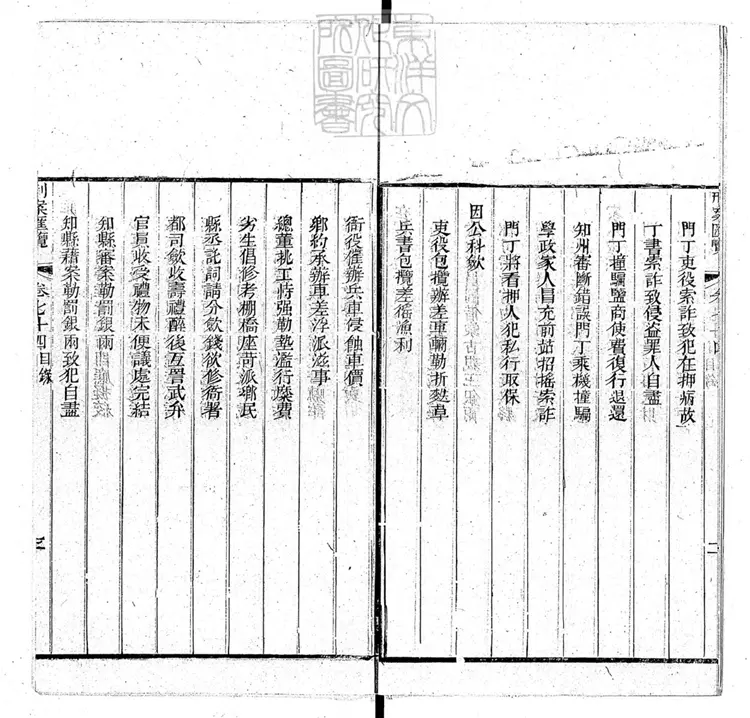 東洋文
化研究
所圖書
刑案匯覽
卷七十四目錄
二
門丁吏役索詐致犯在押病故
丁書索詐致侵盜罪人自盡
門丁撞騙鹽商使費復行退還
知州審斷錯誤門丁乘機撞騙
學政家人冒充前站招搖索詐
門丁將看押人犯私行取保
因公科歛
吏役包攬辦差車輛勒折麩草
兵書包攬差徭漁利
衙役催辦兵車侵蝕車價
鄉約承辦車差浮派滋事
總董挑工恃强勒墊濫行糜費
劣生倡修考棚橋座苛派鄉民
縣丞託詞請分歛錢欲修衙署
都司歛收壽禮醉後互詈武弁
官員收受禮物未便議處完結
知縣審案勒罰銀兩
知縣藉案勒罰銀兩致犯自盡
刑案匯覽
卷七十四目錄
三